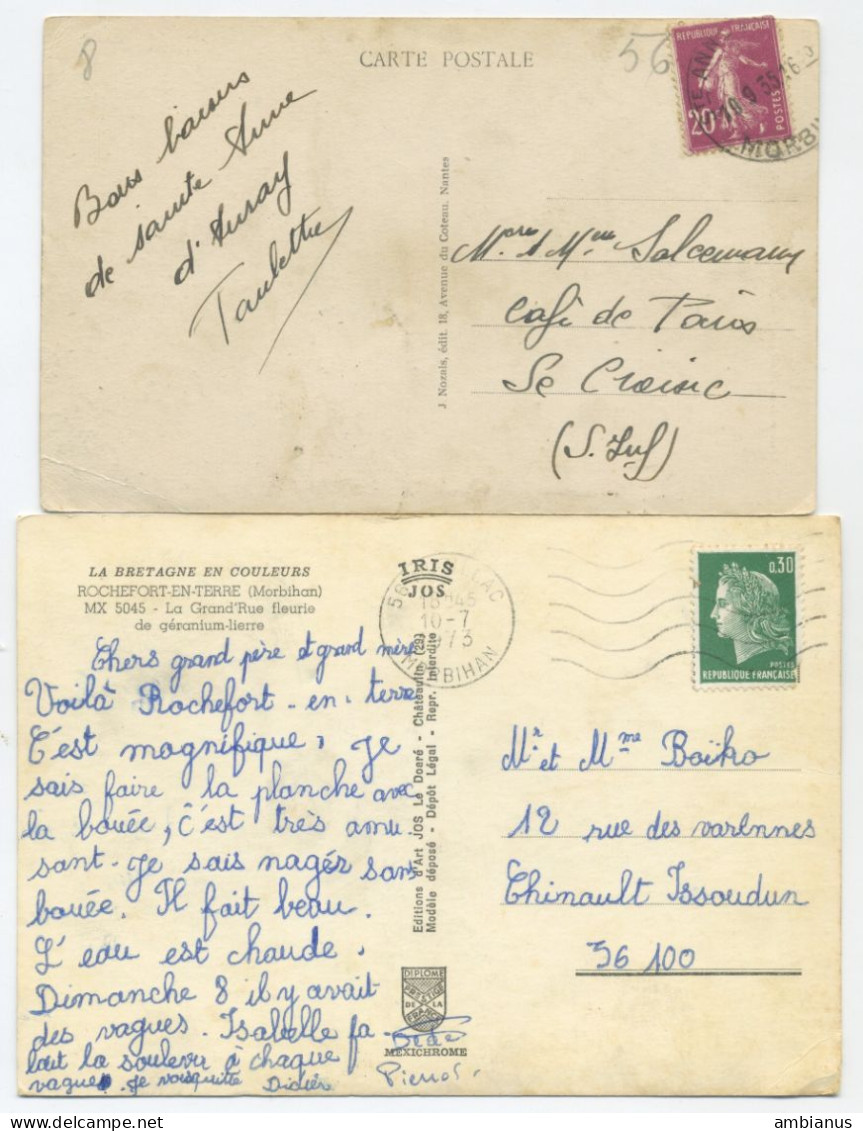 8
CARTE POSTALE
56
REPUBLIQUE FRANÇAISE
20
POSTES
TE ANN
10 9 35
MORBI
Bons baisers
de sainte Anne
d'Auray
Paulette
J. Nozais, édit. 18, Avenue du Coteau, Nantes
Café de Paris
Le Croisic
(L. Inf)
LA BRETAGNE EN COULEURS
ROCHEFORT-EN-TERRE (Morbihan)
MX 5045 - La Grand'Rue fleurie
de géranium-lierre
IRIS
JOS
56
LAC
10-7
1973
MORBIHAN
0,30
POSTES
REPUBLIQUE FRANÇAISE
Chers grand père et grand mère
Voilà Rochefort-en-terre
C'est magnifique, Je
sais faire la planche avec
la bouée, c'est très amu
sant. Je sais nager sans
bouée. Il fait beau.
L'eau est chaude.
Dimanche 8 il y avait
des vagues. Isabelle fa-
lait la soulever à chaque
vague. Je vous quitte Didier
Dédé
Pierrot
Editions d'Art JOS Le Doaré - Châteaulin (29)
Modèle déposé - Dépôt Légal - Repr. Interdite
DIPLOME
PRESTIGE
DE LA
FRANCE
MEXICHROME
Mr et Mme Boïko
12 rue des varennes
Thinault Issoudun
36 100
www.delcampe.net
ambianus